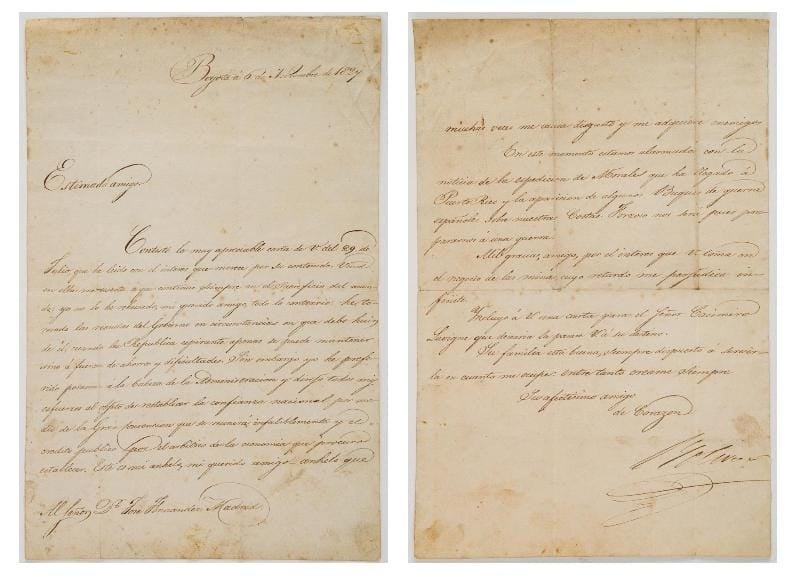 Bogotá á 6 de Nbre de 1827
Estimado amigo
Contesto la muy apreciable carta de V. del 29 de
Julio, que he leido con el interes que merece por su contenido.
en ella me exorta á que continue siempre en el Sacrificio del man-
do; yo no lo he rehusado, mi querido amigo, todo lo contrario: he to-
mado las riendas del Gobierno en circunstancias en que debo huir
de él, cuando la República espirante apenas se puede mantener
sino á fuerza de ahorro y dificultades. Sin embargo yo he prefe-
rido ponerme á la cabeza de la Administracion y dirijo todos mis
esfuerzos al objeto de restablecer la confianza nacional por me-
dio de la Gran Convencion que se reunirá infaliblemente y el
credito publico por el arbitrio de la economia que procuro
establecer. Este es mi anhelo, mi querido amigo, anhelo que
Al Señor Dr. José Fernandez Madrid
muchas veces me causa disgusto y me adquiere enemigos
En este momento estamos alarmados con la
noticia de la espedicion de Morales que ha llegado á
Puerto Rico y la aparicion de algunos Buques de guerra
española sobre nuestras Costas. Forzoso nos será pues pre-
pararnos á una guerra.
Mil gracias, amigo, por el interes que V. toma en
el negocio de las minas cuyo retardo me perjudica in-
finito.
Incluyo á V. una carta para el Señor Casimiro
que deseara la pasara V. á su destino.
Su familia está buena, siempre dispuesto á servir-
la en cuanto me ocupe. entre tanto creame siempre
Su afectisimo amigo
de Corazon
Bolivar